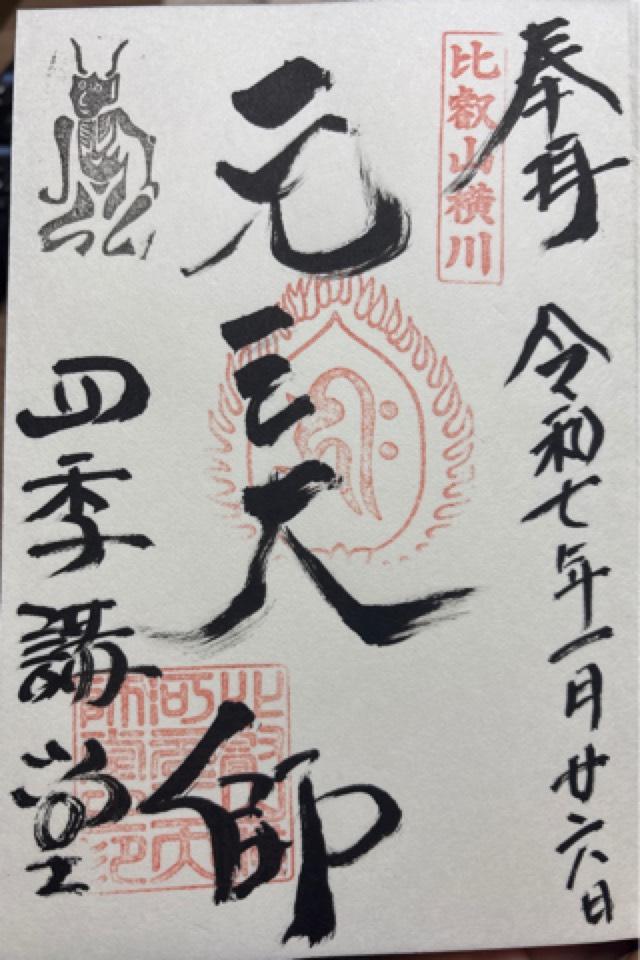 奉拝
令和七年一月廿六日
比叡山横川
元三大師
四季講堂